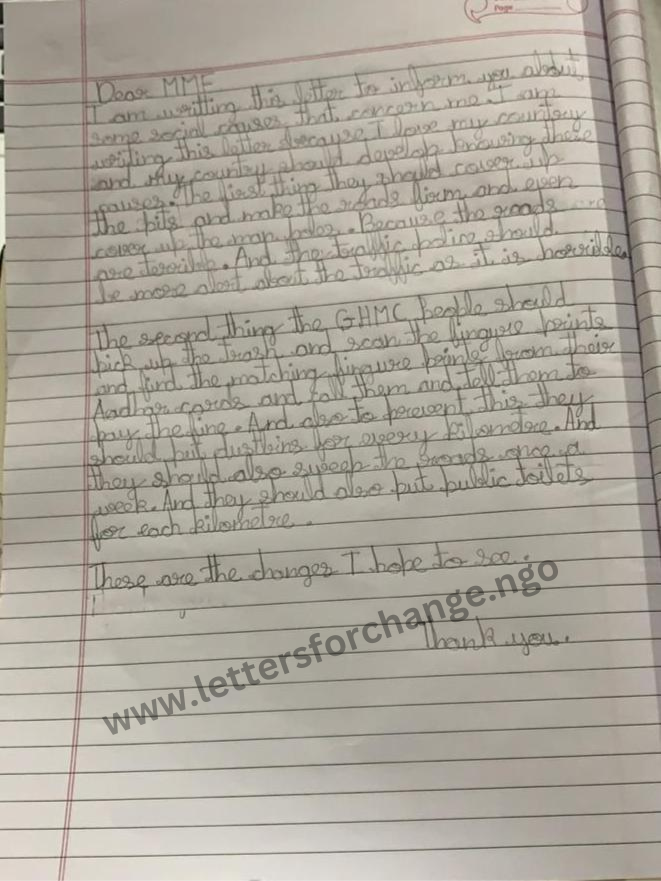 Page
Dear MMF
I am writting this letter to inform you about,
some social causes that concern me. I am
writing this letter because I love my country
and my country should develop knowing these
causes. The first thing they should cover up
the pits and make the roads firm and even
cover up the map holes. Because the roads are
are terrible. And the traffic police should
be more alert about the traffic as it is horrible.
The second thing the GHMC people should
pick up the trash and scan the fingure prints
and find the matching fingure prints from their
Aadhar cards and call them and tell them to
pay the fine. And also to prevent this they
should put dustbins for every kilometre. And
they should also sweep the roads once a
week. And they should also put public toilets
for each kilometre.
These are the changes I hope to see.
Thank you.
www.lettersforchange.ngo